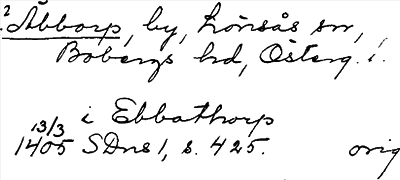 2 Åbborp, by, Lönsås sn,
Bobergs hd, Österg. l.
i Ebbathorp
13/3
1405 SDns 1, s. 425. orig